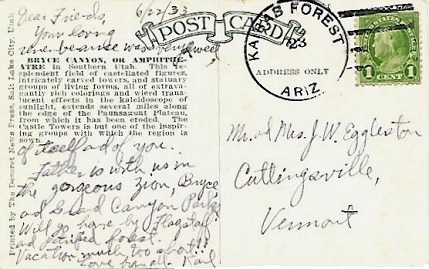 Dear Friends, 6/22/33
Your loving
remembrance was very sweet
BRYCE CANYON, OR AMPHITHE-
ATRE: in Southern Utah. This
splendent field of castellated figures,
intricately carved towers, and statuary
groups of living forms, all of extrava-
gantly rich colorings and wierd trans-
lucent effects in the kaleidoscope of
sunlight, extends several miles along
the edge of the Paunsagunt Plateau,
from which it has been eroded. The
Castle Towers is but one of the inspir-
ing groups with which the region is
sown.
of itself and of you.
Father is with us in
the gorgeous Zion, Bryce
and Grand Canyon Parks
Will go home by Flagstaff
and petrified forest.
Vacation much too short!!
Love from all.
Printed by The Deseret News Press, Salt Lake City, Utah
POST CARD
ADDRESS ONLY
KAIBAB FOREST
23
ARIZ.
1 CENT 1
Mr. and Mrs. J. W. Eggleston
Cuttingsville,
Vermont